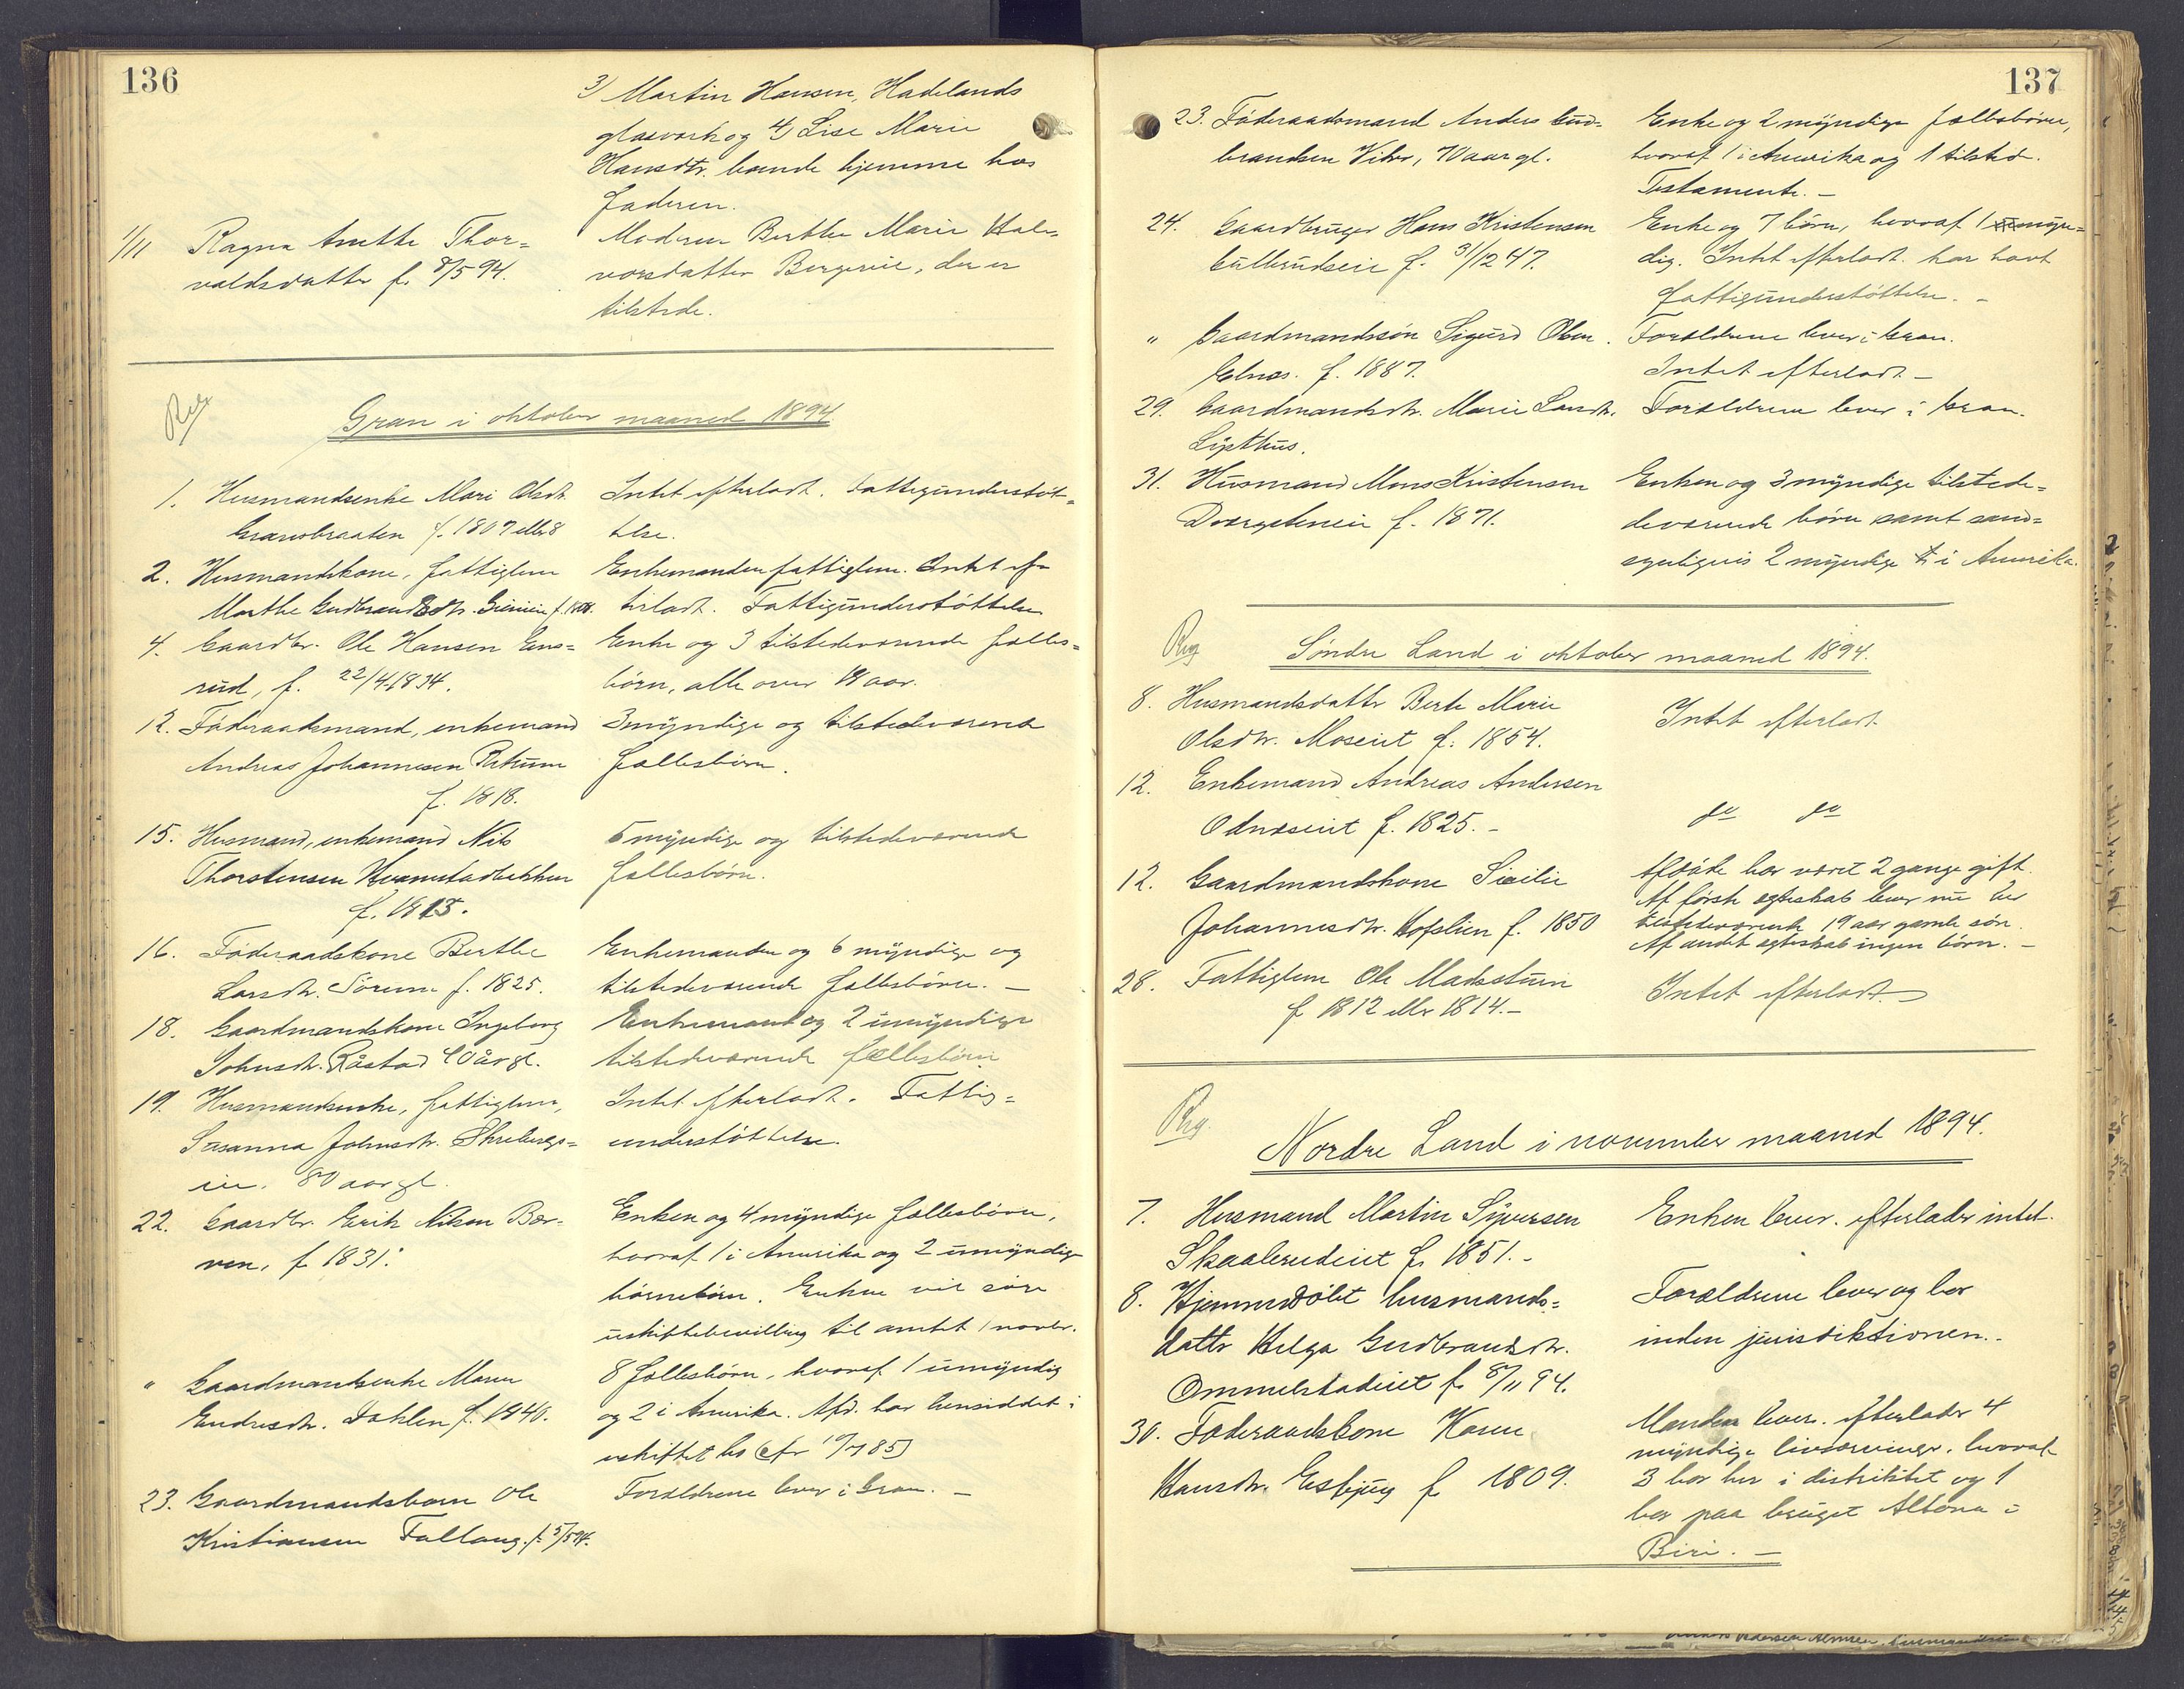 136
3) Martin Hansen, Hadelands
glasværk og 4) Lise Marie
Hansdtr. bænde hjemme hos
faderen.
1/11 Ragna Anette Thor-
valdsdatter f. 8/5 94.
Moderen Berthe Marie Hal-
vorsdatter Bergereie, der er
tilstede.
Reg
Gran i oktober maaned 1894
1. Husmandsenke Mari Olsdtr.
Granebraaten f. 1807 eller 8
Intet efterladt. Fattigunderstøt-
telse.
2. Husmandskone, fattiglem
Marthe Gudbrandsdtr.
Enkemanden fattiglem. Intet ef-
terladt. Fattigunderstøttelse
4. Gaardbr. Ole Hansen Ens-
rud, f. 22/4 1834.
Enke og 3 tilstedeværende fælles-
børn, alle over 18 aar.
12. Føderaadsmand, enkemand
Andreas Johannesen
f. 1818.
3 myndige og tilstedeværende
fællesbørn.
15. Husmand, enkemand Nils
Thorstensen Hvamstadbakken
f. 1815.
5 myndige og tilstedeværende
fællesbørn.
16. Føderaadskone Berthe
Larsdtr. Sørum f. 1825.
Enkemanden og 6 myndige og
tilstedeværende fællesbørn. —
18. Gaardmandskone Ingeborg
Johnsdtr. Råstad 40 år gl.
Enkemand og 2 umyndige
tilstedeværende fællesbørn
19. Husmandsenke, fattiglem,
Susanna Johnsdtr. Skrebergs-
eie. 80 aar gl.
Intet efterladt. Fattig-
understøttelse.
22. Gaardbr. Erik Nilsen Bør-
ven, f. 1831.
Enken og 4 myndige fællesbørn,
hvoraf 1 i Amerika og 2 umyndige
børnebørn. Enken vil søge
uskiftebevilling til amtet 1 novbr.
" Gaardmandsenke Maren
Endresdtr. Dahlen f. 1840.
8 fællesbørn, hvoraf 1 umyndig
og 2 i Amerika. Afd. har hensiddet i
uskiftet bo (cfr 10/7 85)
23. Gaardmandsbarn Ole
Kristiansen Fallang. f. 5/5 94.
Forældrene lever i Gran. —
137
23. Føderaadsmand Anders Gud-
brandsen Viker, 70 aar gl.
Enke og 2 myndige fællesbørn,
hvoraf 1 i Amerika og 1 tilstede.
Testamente. —
24. Gaardbruger Hans Kristensen
Gullerudseie f. 31/12 47.
Enke og 7 børn, hvoraf 1 myn-
dig. Intet efterladt. har havt
fattigunderstøttelse. —
" Gaardmandssøn Sigurd Olsen
Elnæs. f. 1887.
Forældrene lever i Gran.
Intet efterladt —
29. Gaardmandsdtr. Marie Larsdtr.
Lysthus.
Forældrene lever i Gran.
31. Husmand Mons Kristensen
Dvergsteneie f. 1871.
Enken og 3 myndige tilstede-
deværende børn samt sand-
synligvis 2 myndige i Amerika.
Reg
Søndre Land i oktober maaned 1894.
8. Husmandsdatter Berte Marie
Olsdtr. Moseiet f. 1854.
Intet efterladt
12. Enkemand Andreas Andersen
Odnæseiet f. 1825. —
do do
12. Gaardmandskone Sicilie
Johannesdtr. Hofslien f. 1850
Afdøde har været 2 gange gift.
Af første egteskab lever nu her
tilstedeværende 19 aar gamle søn.
Af andet egteskab ingen børn. —
28. Fattiglem Ole Madsstuen
f 1812 eller 1814. —
Intet efterladt
Reg.
Nordre Land i november maaned 1894.
7. Husmand Martin Syversen
Skaalerudeiet f. 1851. —
Enken lever. efterlader intet.
8. Hjemmedøbt husmands-
datter Helga Gudbrandsdtr.
Ommelstadeiet f. 8/11 94.
Forældrene lever og bor
inden jurisdiktionen. —
30. Føderaadskone Karen
Hansdtr. Esbjug f 1809.
Manden lever. efterlader 4
myndige livsarvinger. hvoraf
3 bor her i distriktet og 1
bor paa bruget Altona i
Biri. —